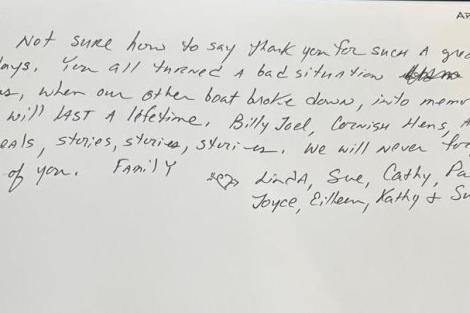 AP
Not sure how to say thank you for such a gre
ays. You all turned a bad situation
s, when our other boat broke down, into memo
will LAST A lifetime. Billy Joel, Cornish Hens,
eals, stories, stories, stories. We will never for
of you. Family
Linda, Sue, Cathy, Pa
Joyce, Eileen, Kathy & Su